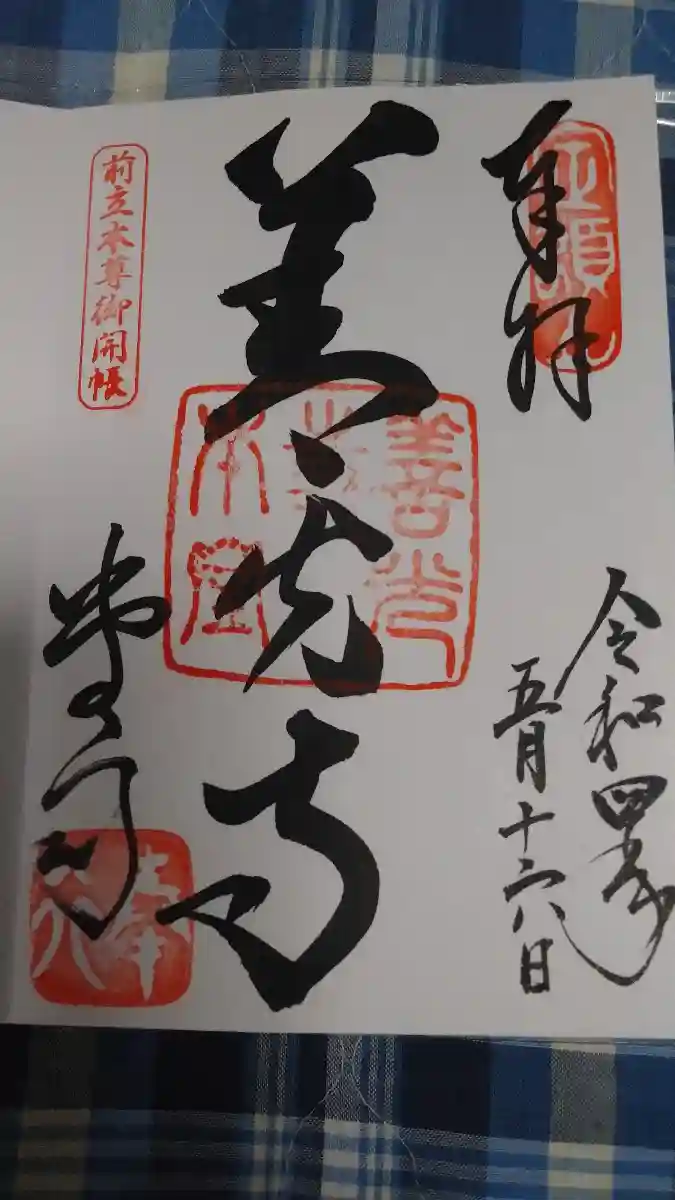 奉拝
令和四年
五月十六日
善光寺
善光
前立本尊御開帳
堂司